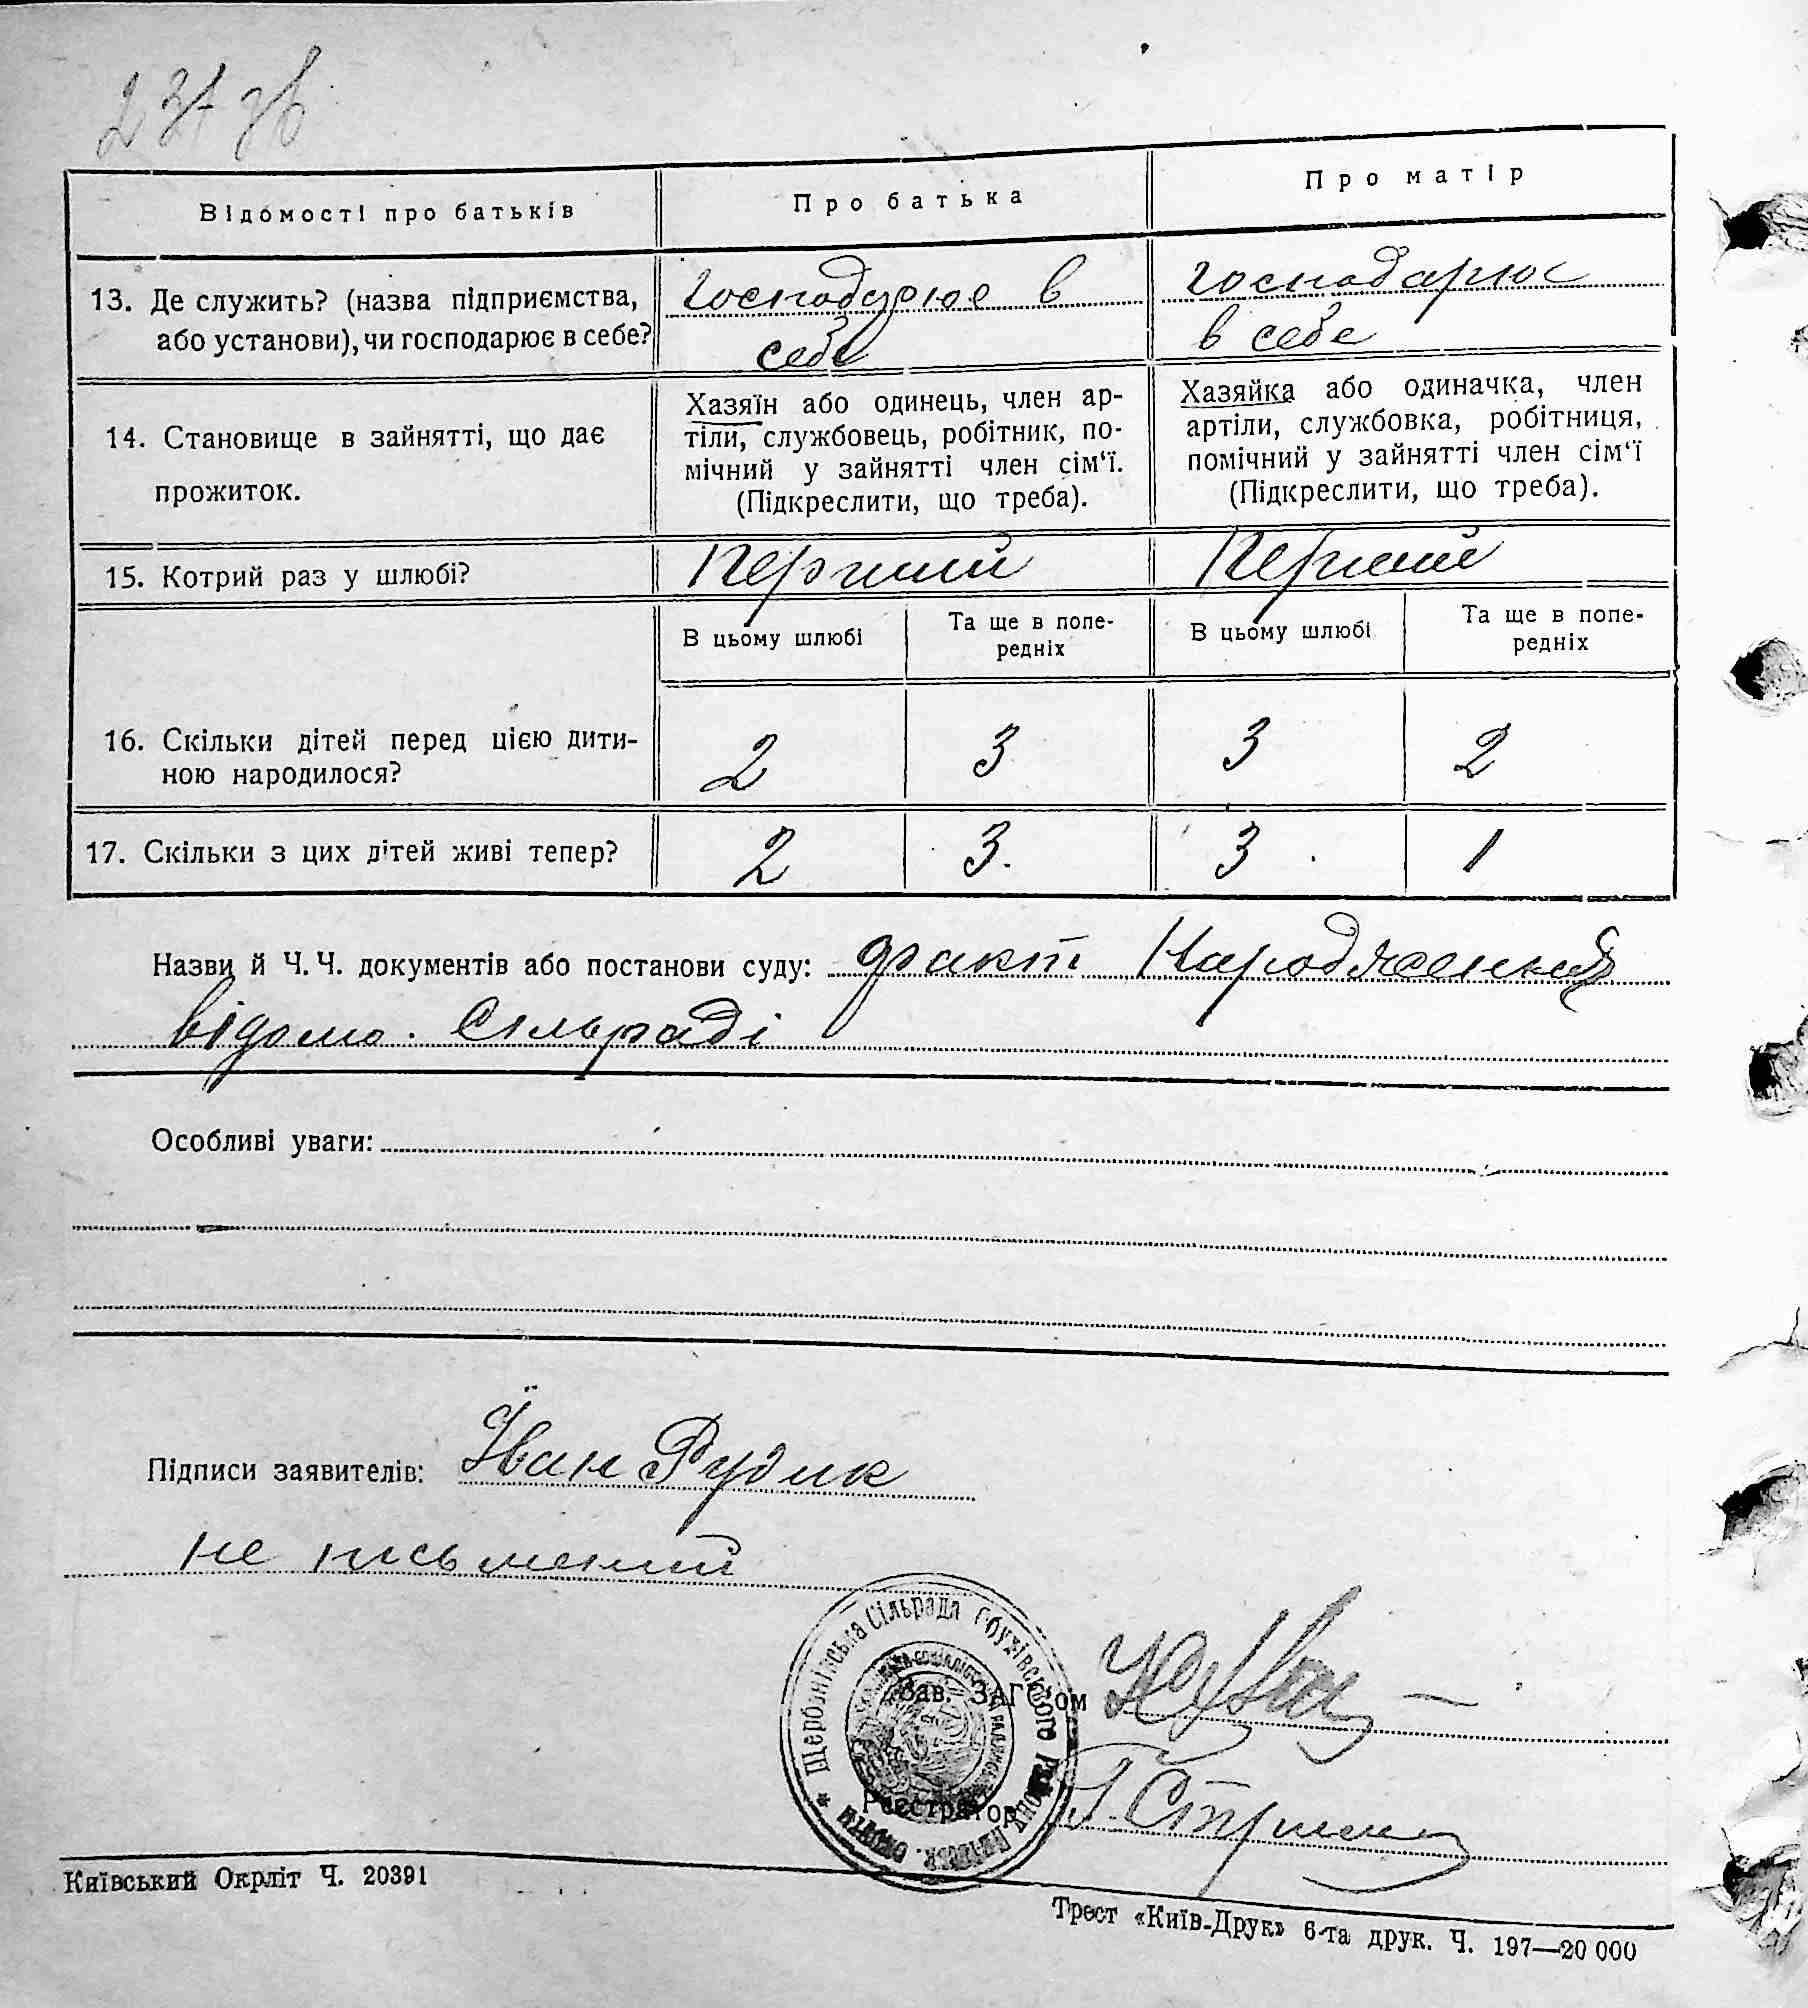 Відомості про батьків
Про батька
Про матір
13. Де служить? (назва підприємства, або установи), чи господарює в себе?
Господарює в
себе
господарює
в себе
14. Становище в зайнятті, що дає
прожиток.
Хазяїн або одинець, член ар-
тіли, службовець, робітник, по-
мічний у зайнятті член сім‘ї.
(Підкреслити, що треба).
Хазяйка або одиначка, член
артіли, службовка, робітниця,
помічний у зайнятті член сім‘ї
(Підкреслити, що треба).
15. Котрий раз у шлюбі?
Перший
Перший
В цьому шлюбі
Та ще в попе-
редніх
В цьому шлюбі
Та ще в попе-
редніх
16. Скільки дітей перед цією дити-
ною народилося?
2
3
3
2
17. Скільки з цих дітей живі тепер?
2
3.
3
1
Назви й Ч. Ч. документів або постанови суду: факт Народження
відомо. Сільраді
Особливі уваги:
Підписи заявителів: Іван Рудик
не письмений
Щербанівська Сільрада Обухівського району
Зав. ЗАГС'ом
Реєстратор
Київський Окрліт Ч. 20391
Трест «Київ-Друк» 6-та друк. Ч. 197—20 000